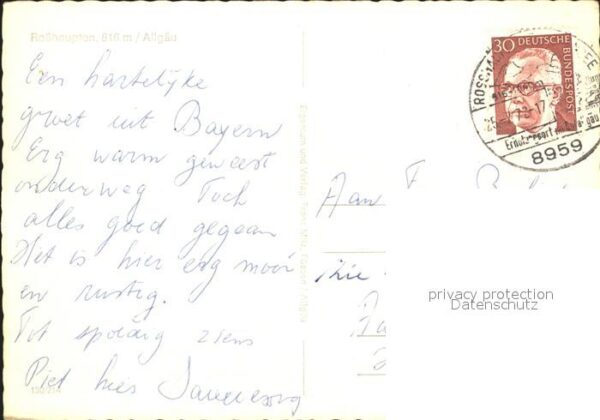 Roßhaupten, 816 m / Allgäu
Een hartelijke
groet uit Bayern
Erg warm geweest
onderweg Toch
alles goed gegaan
Het is hier erg mooi
en rustig.
Tot spoedig ziens
Piet
Verlag Franz Milz, Füssen / Allgäu
30 DEUTSCHE
BUNDESPOST
8959
Aan
privacy protection
Datenschutz